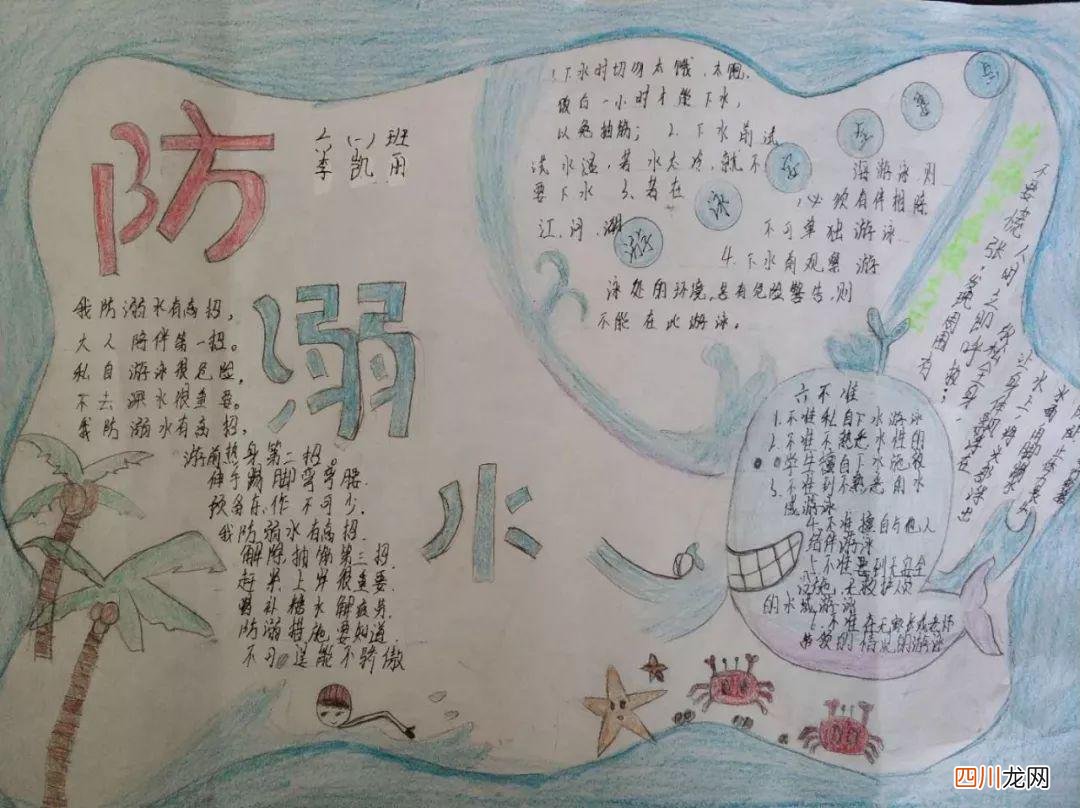 防
溺
水
李凯雨
我防溺水有高招,
大人陪伴第一招。
私自游泳很危险,
不去深水很重要。
我防溺水有高招,
游前热身第二招。
伸手踢脚弯弯腰.
预备东作不可少.
我防弱水有高招.
解除抽筋第三招.
赶来上岸很重要.
防溺措施要知道.
不可逞能不骄傲
1.下水时切勿太饿、太饱.
饭白一小时才能下水,
以免抽筋; 2.下水前试
洗水温,若水太冷,就不
要下水 3.若在
江、河、湖
海游泳,则
必须有伴相陪
不可单独游泳
4.下水前观察游
泳处的环境,若有危险警告,则
不能在此游泳。
游泳
六不准
1.不准私自下水游泳
2.不准不熟悉水性的
学生擅自下水施救
3.不准到不熟悉的水
域游泳
4.不准擅自与他人
结伴游泳
5.不准要到无安全
设施、无救护人员
的水域游泳
6.不准在无家长或老师
带领的情况的游泳
不要慌张,发现周围有
人时立即呼救;
四川龙网